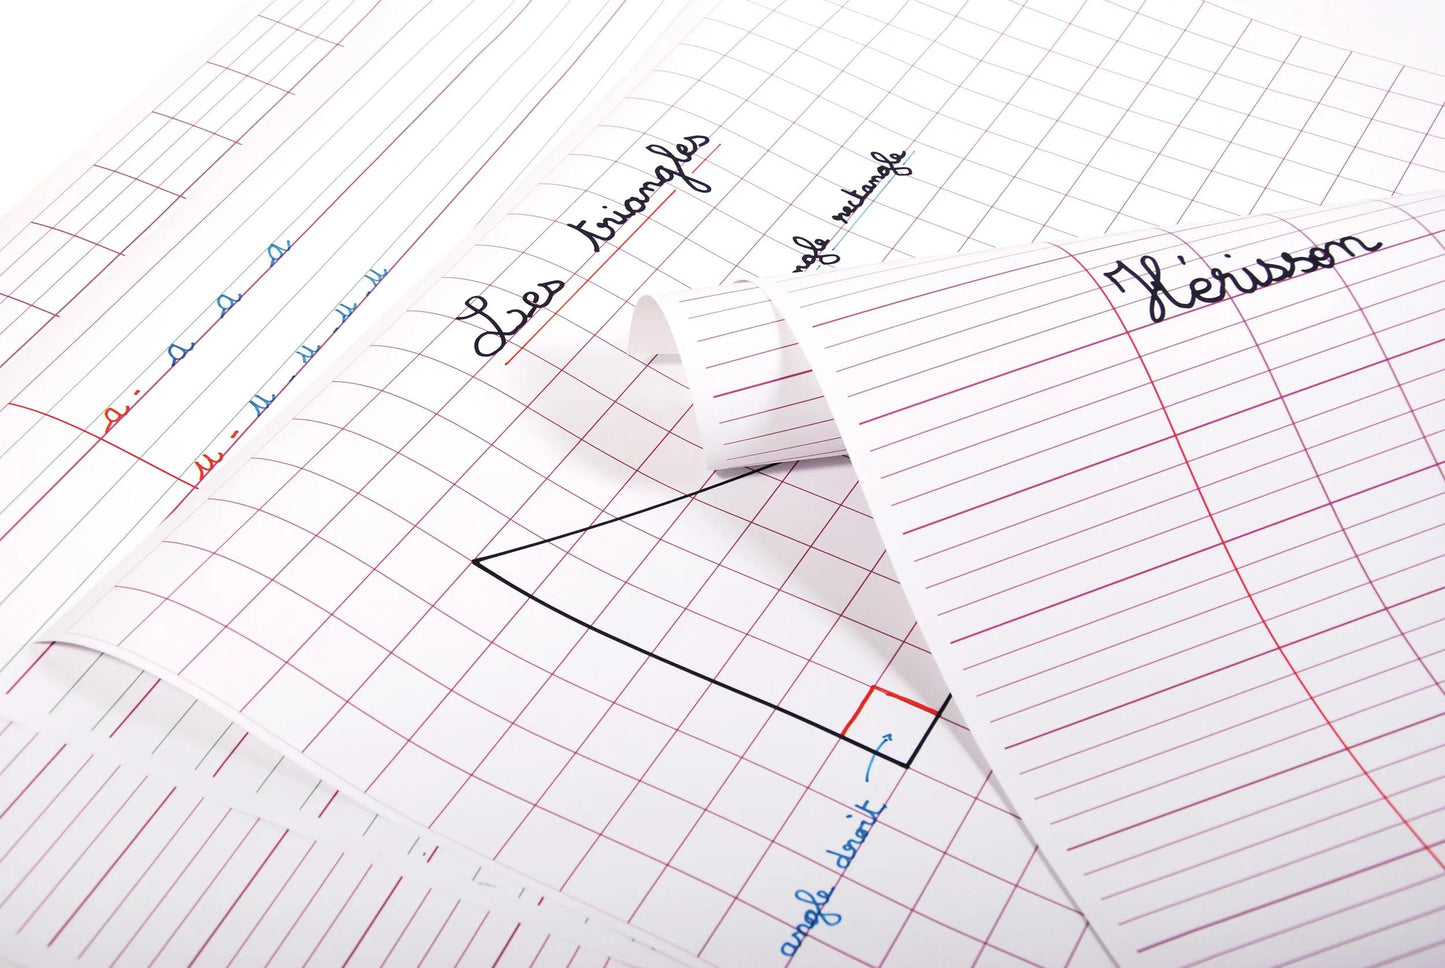 a - a a a
u - u - u - u - u
Les triangles
ngle rectangle
angle droit
Hérisson